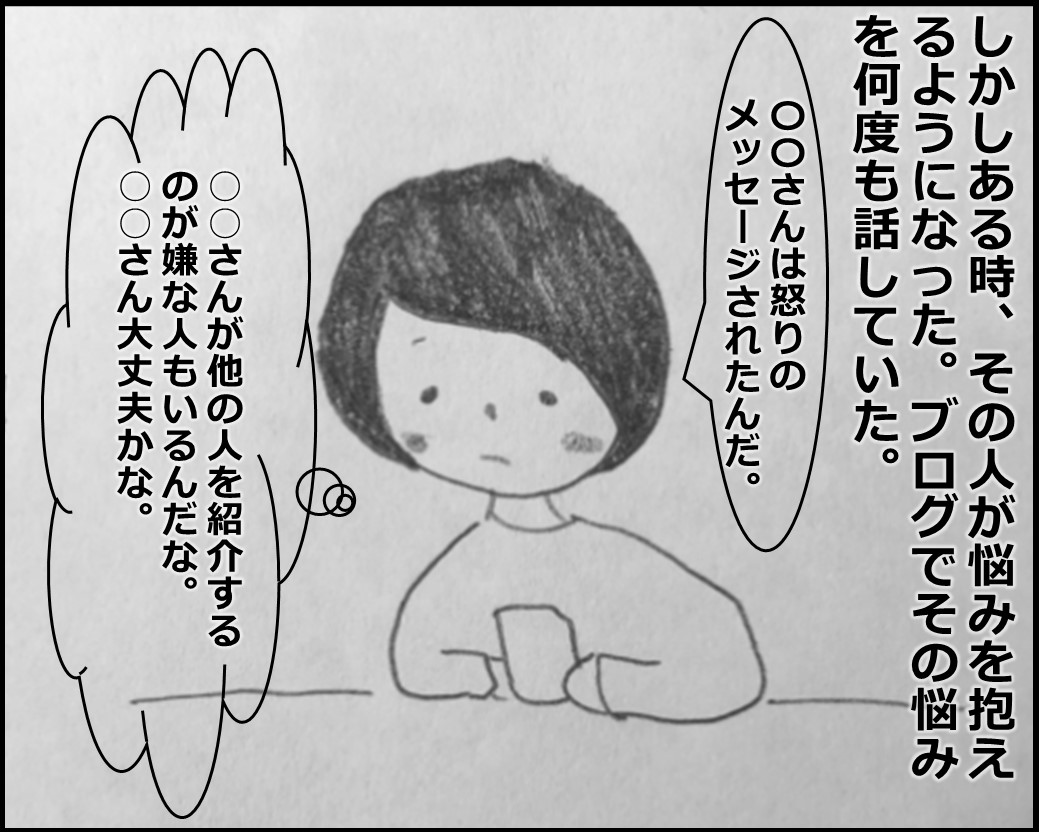 しかしある時、その人が悩みを抱え
るようになった。ブログでその悩み
を何度も話していた。
〇〇さんは怒りの
メッセージされたんだ。
○○さんが他の人を紹介する
のが嫌な人もいるんだな。
○○さん大丈夫かな。